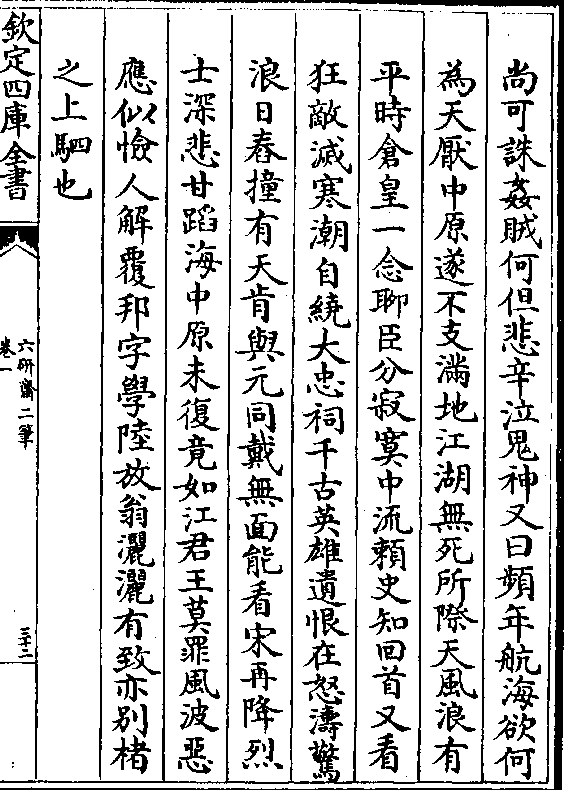 尚可誅姦賊何但悲辛泣鬼神又曰頻年航海欲何
為天厭中原遂不支滿地江湖無死所際天風浪有
平時倉皇一念聊臣分寂寞中流賴史知回首又看
狂敵滅寒潮自繞大忠祠千古英雄遺恨在怒濤驚
浪日舂撞有天肯與元同戴無面能看宋再降烈
士深悲甘蹈海中原未復竟如江君王莫罪風波惡
應似憸人解覆邦字學陸放翁灑灑有致亦别楮
之上駟也
欽定四庫全書
六研齋二筆
卷一
三十二